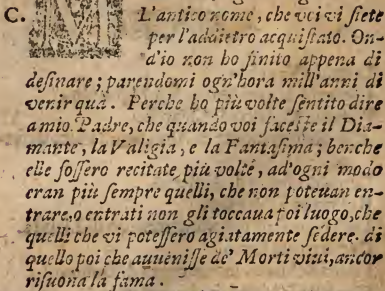 C. M L'antico nome, che voi vi siete
per l'addietro acquistato. On-
d'io non ho finito appena di
desinare; parendomi ogn'hora mill'anni di
venir quà. Perche ho più volte sentito dire
a mio. Padre, che quando voi faceste il Dia-
mante, la Valigia, e la Fantasima; benche
elle fossero recitate più volte, ad'ogni modo
eran più sempre quelli, che non poteuan en-
trare, o entrati non gli toccaua poi luogo, che
quelli che vi potessero agiatamente sedere. di
quello poi che auuenisse de' Morti viui, ancor
risuona la fama.